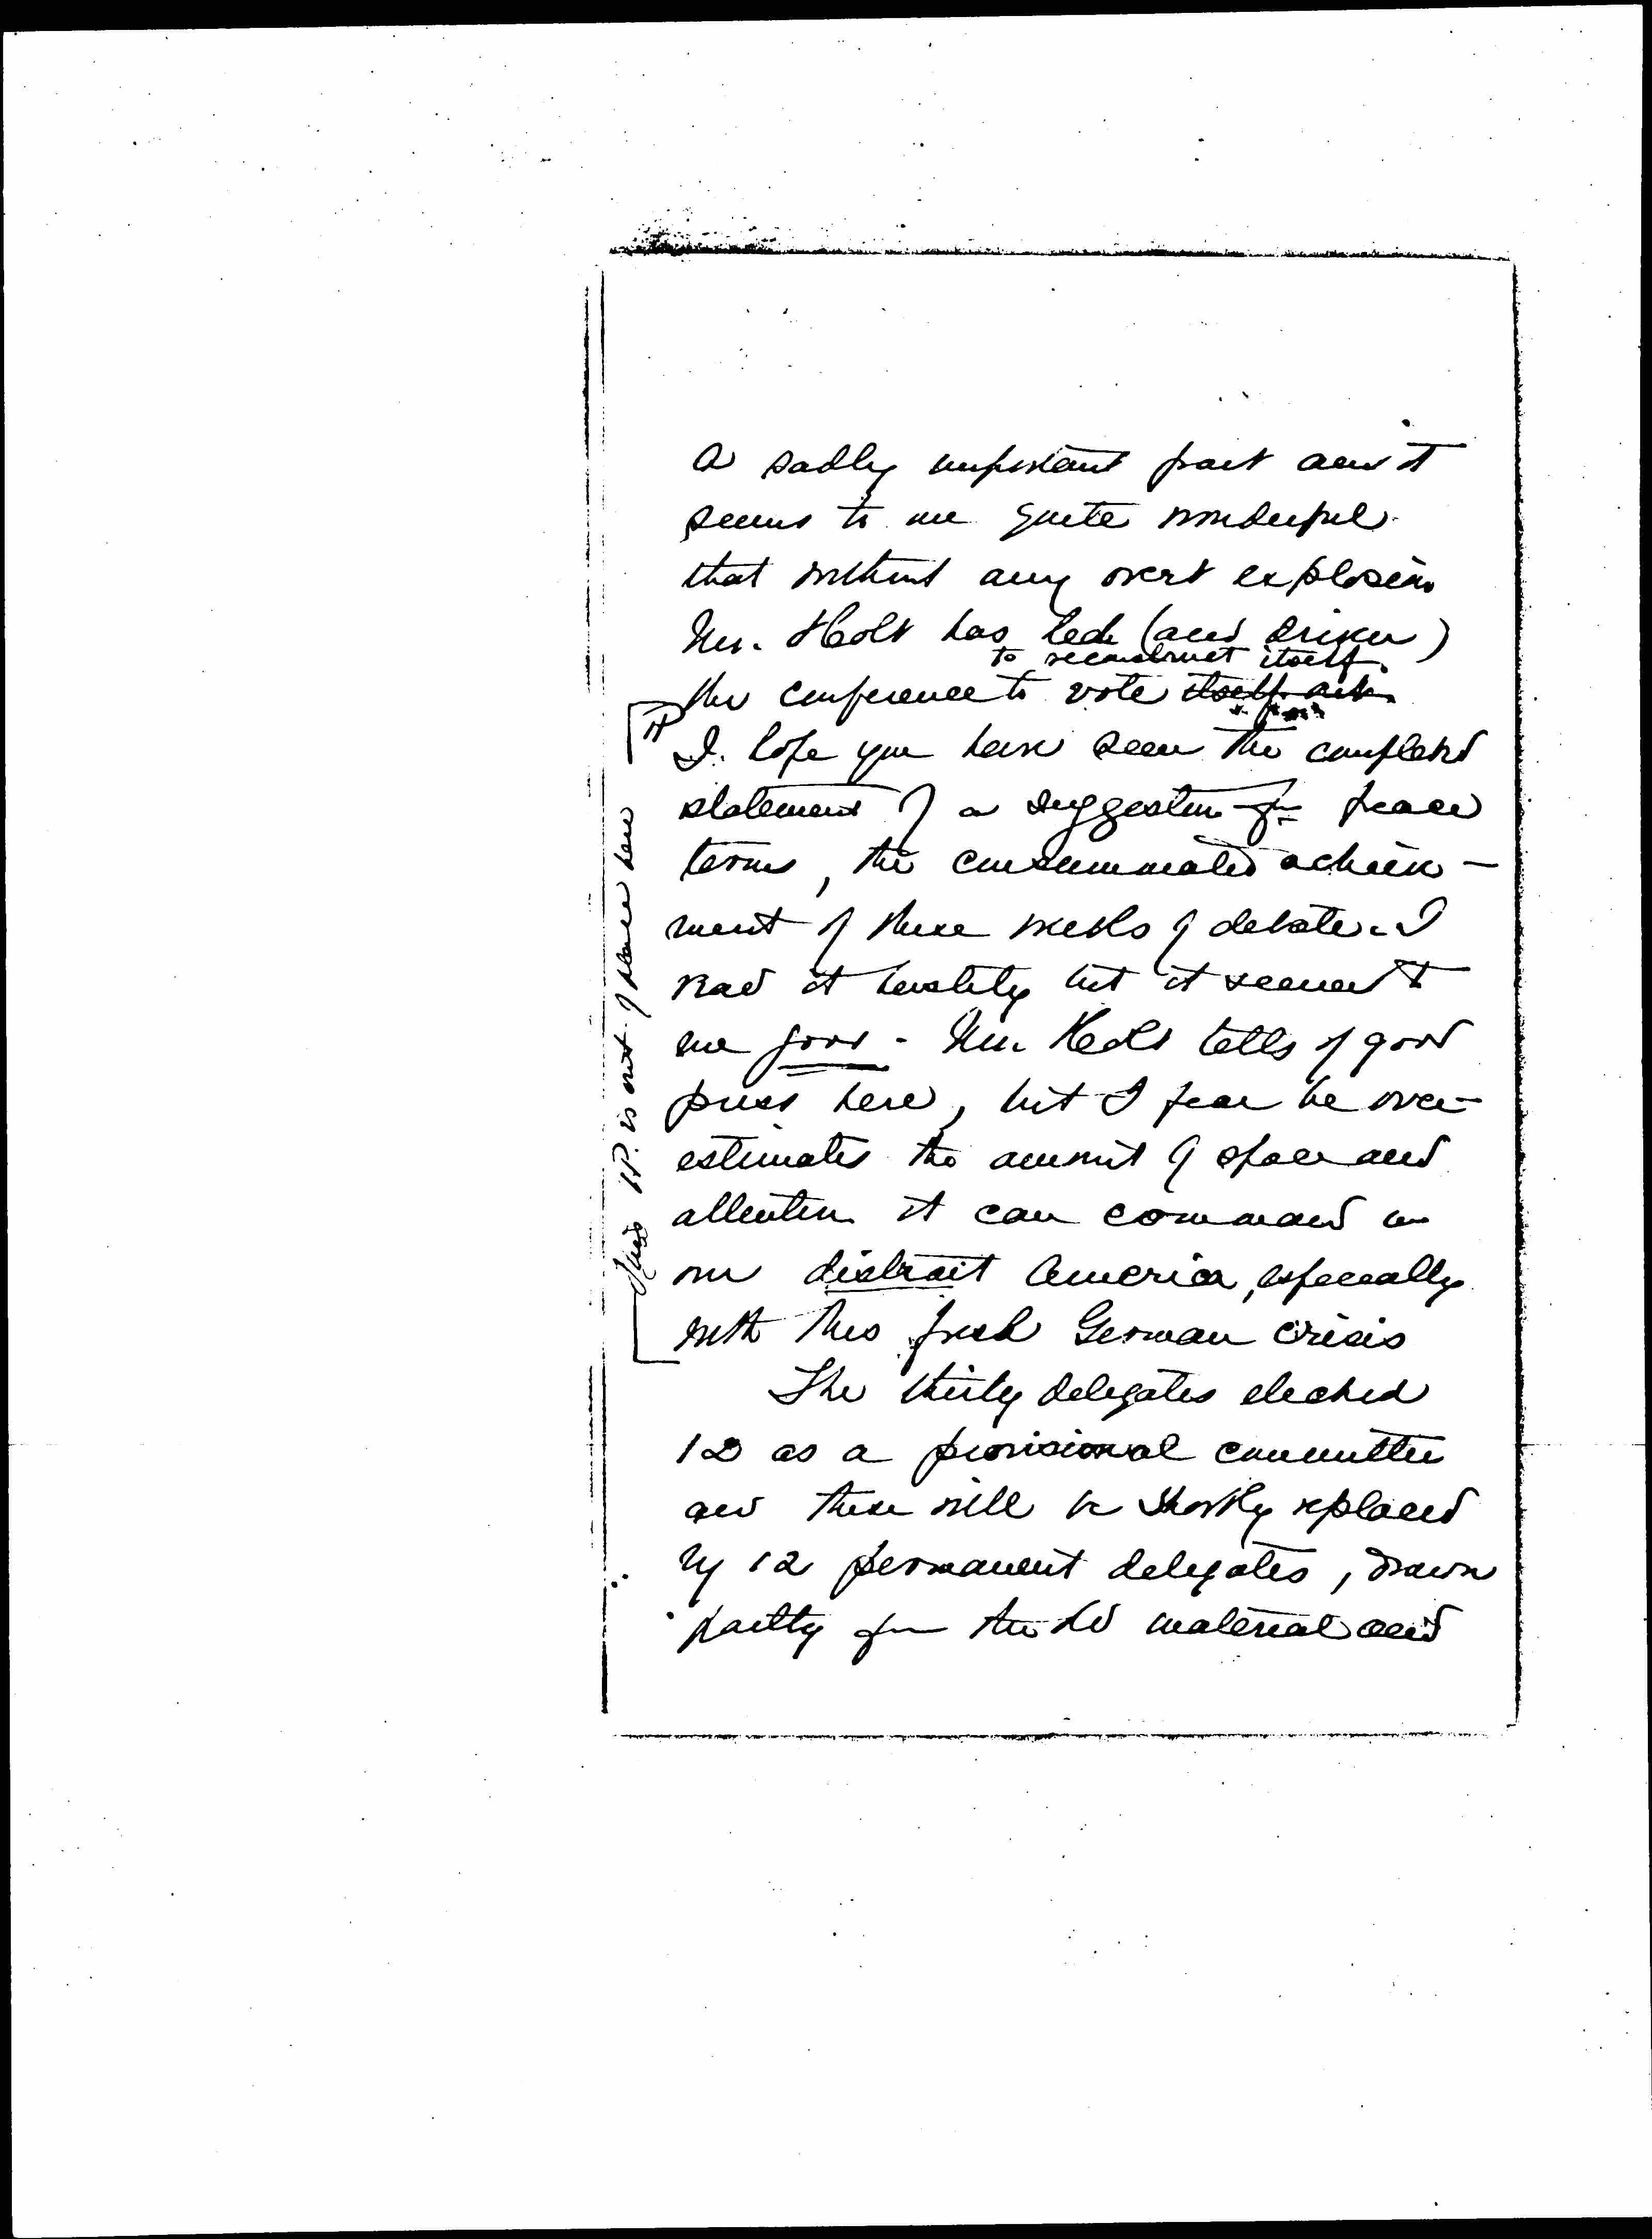 a sadly important part and it
seems to me quite wonderful
that without any overt explosion
Mr. Holt has led (and driven)
to reconstruct itself.
the conference to vote itself out.
¶ I hope you have seen the completed
statement of a suggestion for peace
terms, the consummated achieve-
ment of these weeks of debate. I
read it hastily but it seemed to
me good. Mr. Holt tells of good
press here, but I fear he over-
estimates the amount of space and
attention it can command in
our distrait America, especially
with this fresh German crisis
This ¶. is out of place here
The thirty delegates elected
12 as a provisional committee
and these will be shortly replaced
by 12 permanent delegates, drawn
partly from the old material and